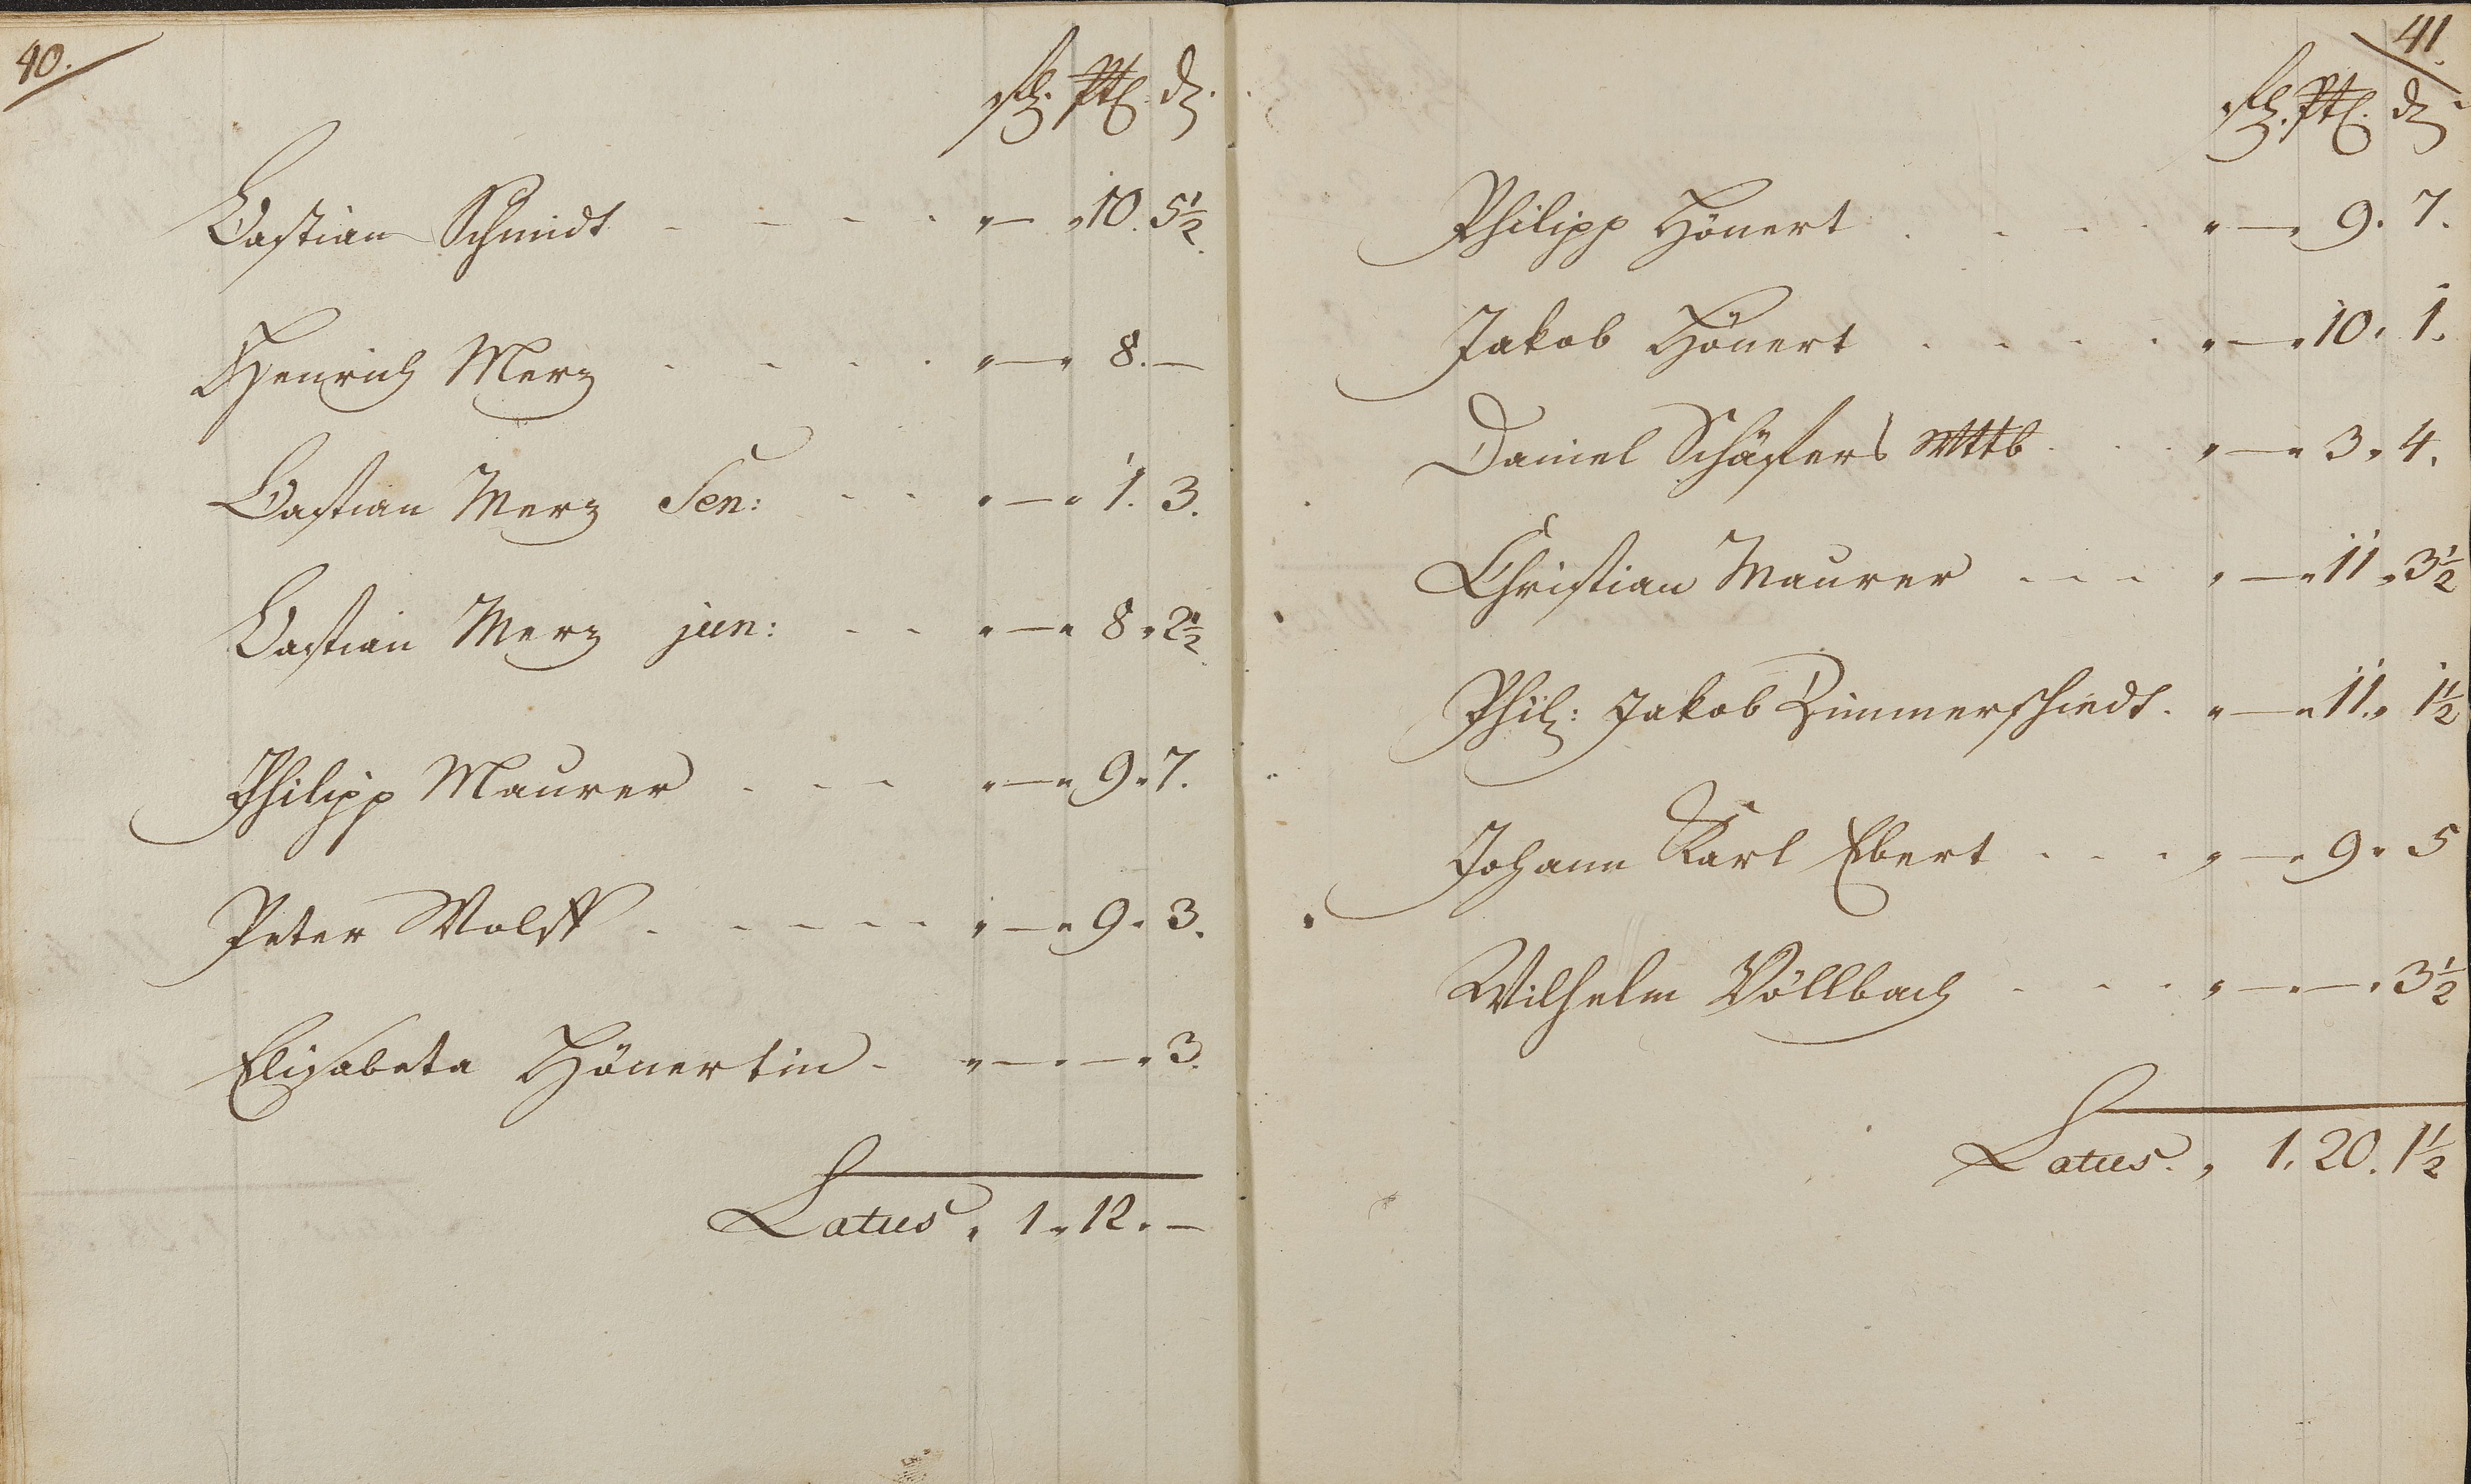 40.
fl. Btz. d.
Bastian Schmidt - - - - " — " 10. 5½.
Henrich Merz - - - - " — " 8. —
Bastian Merz Sen: - - " — " 1. 3.
Bastian Merz jun: - - " — " 8 " 2½.
Philipp Maurer - - - " — " 9 " 7.
Peter Wolff - - - - - " — " 9 " 3.
Elisabeta Hönertin - " — " — " 3.
Latus " 1 " 12 " —
41
fl. Btz. d
Philipp Hönert - - - - " — " 9. 7.
Jakob Hönert - - - - " — " 10. 1.
Daniel Schäfers Wttb - - " — " 3 " 4.
Christian Maurer - - - " — " 11 " 3½
Phil: Jakob Zimmerschiedt - " — " 11 " 1½
Johann Karl Ebert - - - " — " 9 " 5
Wilhelm Völlbach - - - " — " — " 3½
Latus " 1. 20. 1½